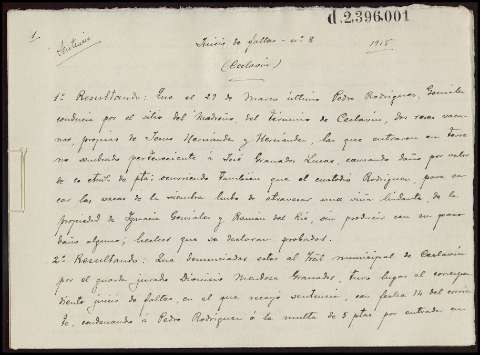 d.2.396.001
1.
Sentencia
Juicio de faltas - nº 8
1915
(Ceclavín)
1º Resultando: Que el 29 de Marzo último Pedro Rodríguez González
conducía por el sitio del Madroño del término de Ceclavín, dos reses vacu-
nas, propias de Jesús Hernández y Hernández, las que entraron en terre
no sembrado perteneciente á José Granados Lucas, causando daños por valor
de 20 cts. de pta; ocurriendo también que el custodio Rodríguez, para sa
car las vacas de la siembra hubo de atravesar una viña lindante, de la
propiedad de Ignacio González y Román del Río, sin producir con su paso
daño alguno; hechos que se declaran probados.
2º Resultando: Que denunciados estos al Tral municipal de Ceclavín
por el guarda jurado Dionisio Mendoza Granados, tuvo lugar el correspon
diente juicio de faltas, en el que recayó sentencia, con fecha 14 del corrien
te, condenando á Pedro Rodríguez á la multa de 5 ptas por entrada en